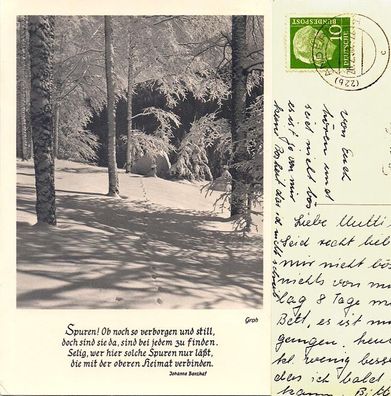 Groh
Spuren! Ob noch so verborgen und still,
doch sind sie da, sind bei jedem zu finden.
Selig, wer hier solche Spuren nur läßt,
die mit der oberen Heimat verbinden.
Johanna Banzhaf
10
DEUTSCHE
BUNDESPOST
(22b)
c
von Euch
hören und
seid nicht bös
erst so von mir
Liebe Mutti
Seid recht
mir nicht bö
nichts von m
tag 8 Tage
Bett, es ist
gangen. heu
kl. wenig besse
das ich bald
kann. Bitt